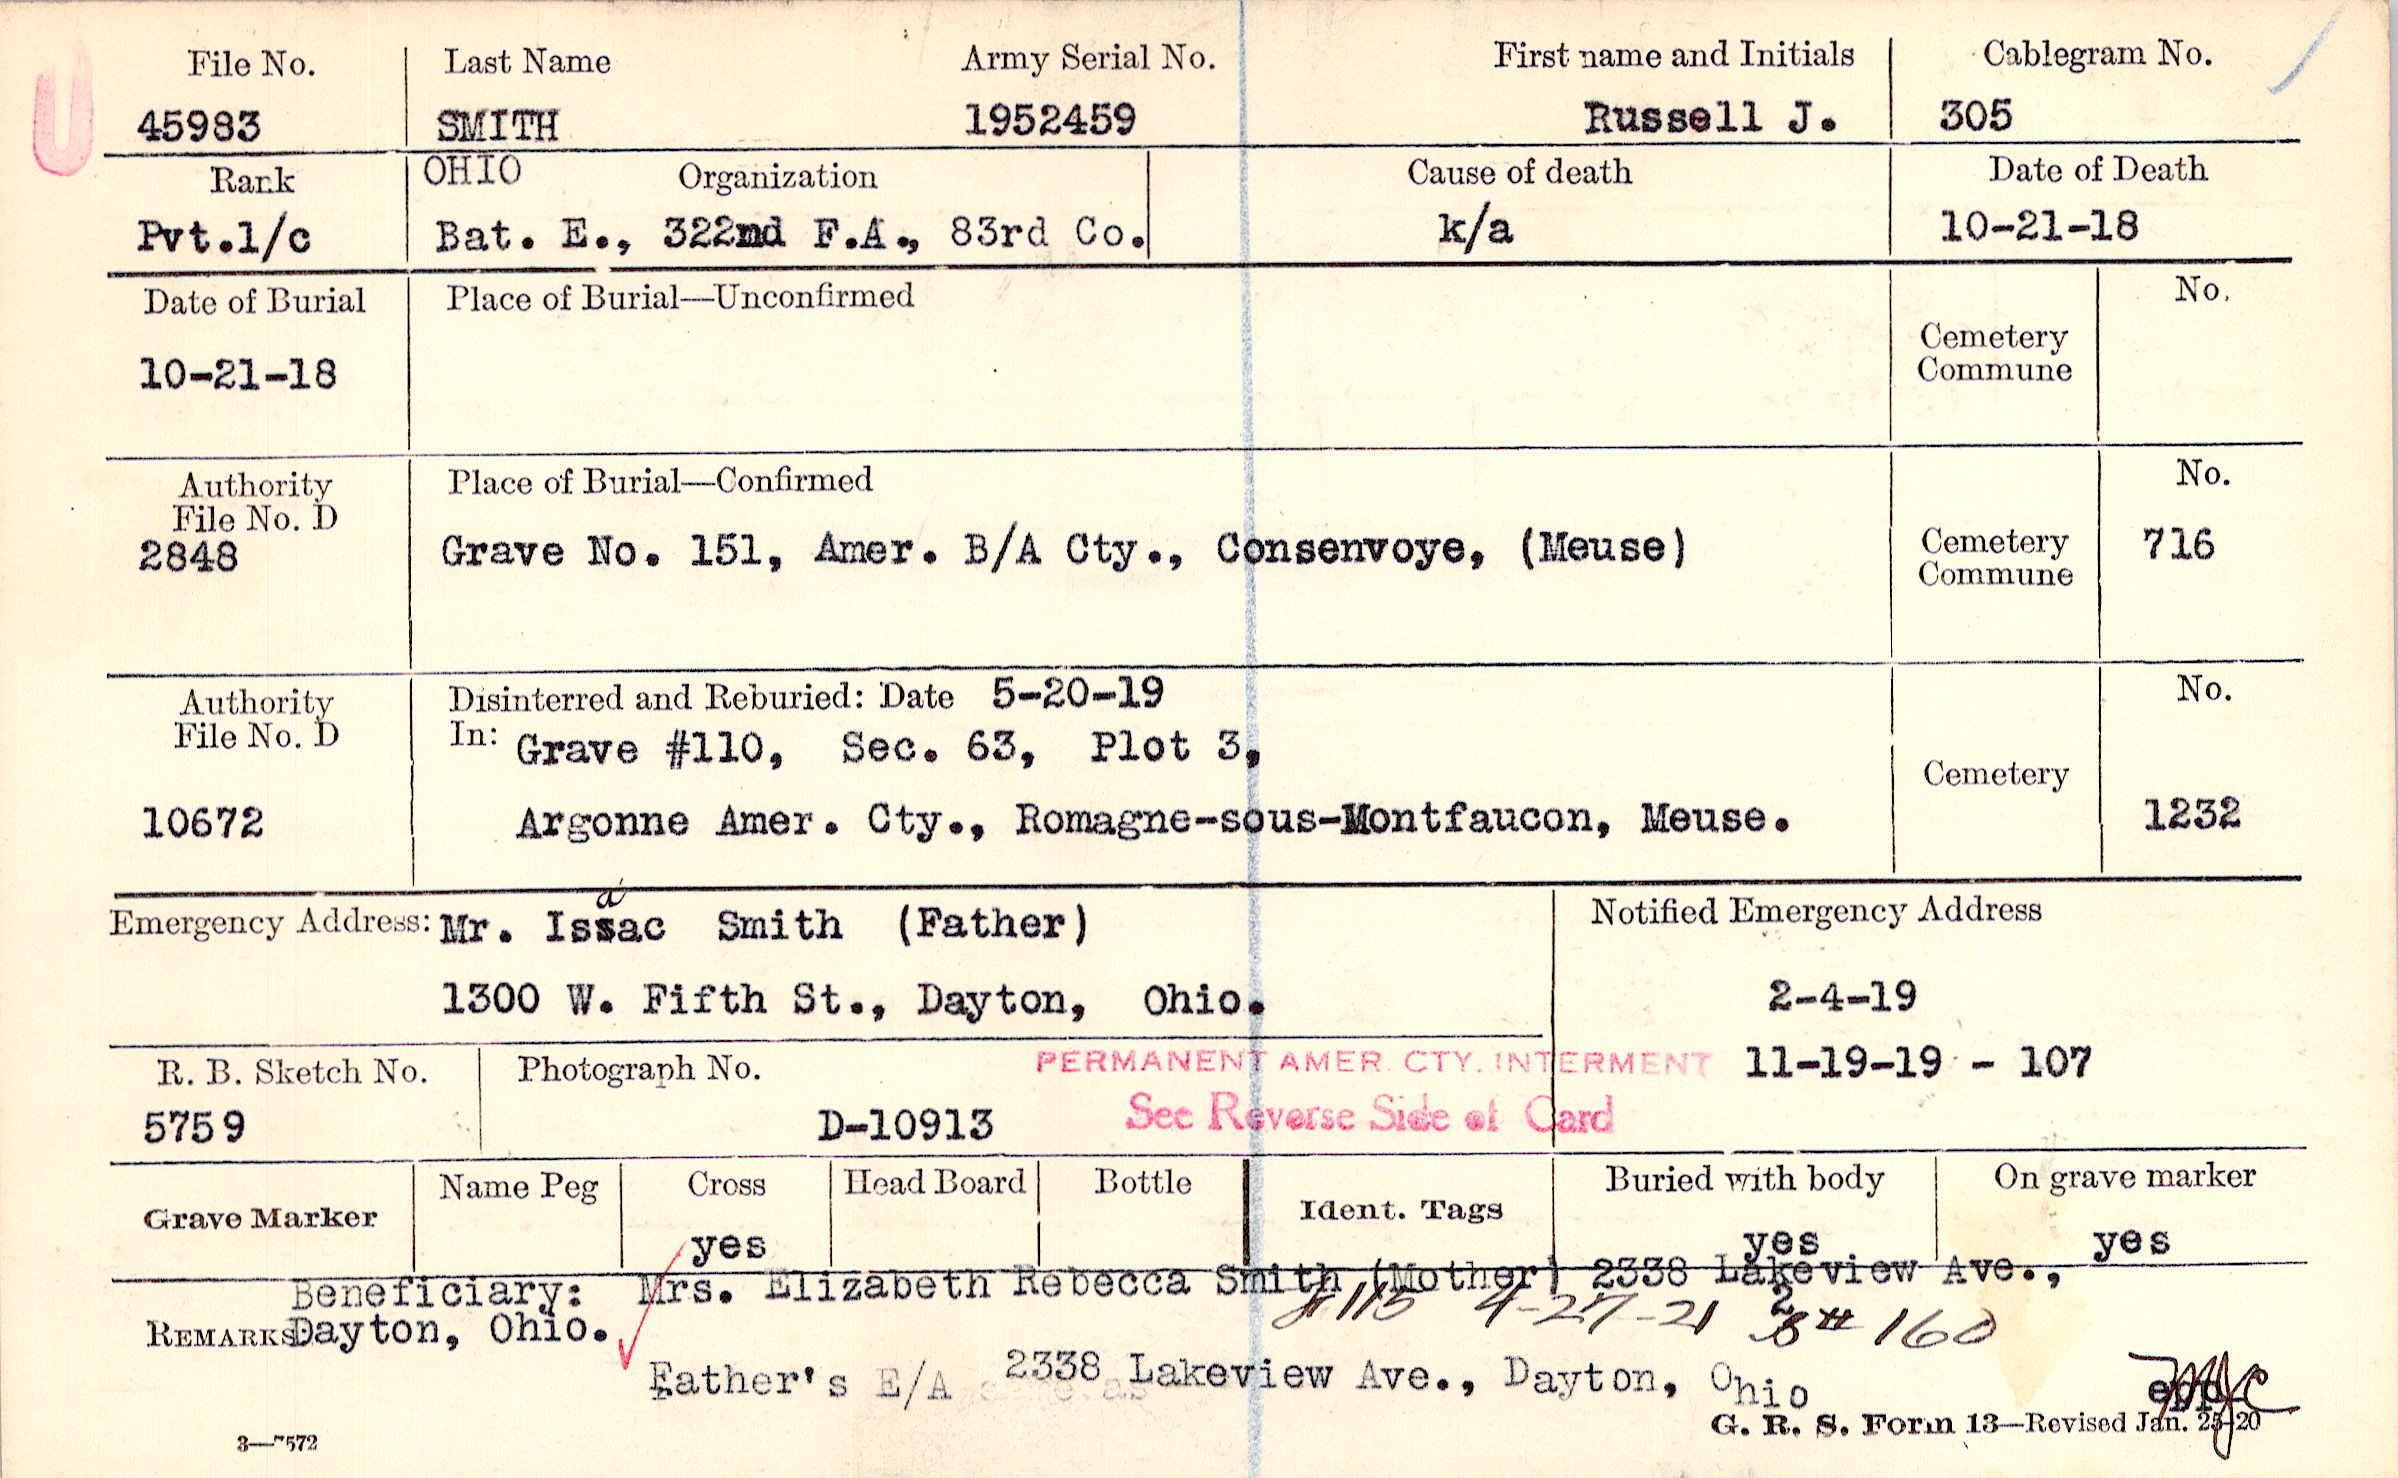 U
File No. Last Name Army Serial No. First name and Initials Cablegram No.
45983 SMITH 1952459 Russell J. 305
Rank OHIO Organization Cause of death Date of Death
Pvt.1/c Bat. E., 322nd F.A., 83rd Co. k/a 10-21-18
Date of Burial Place of Burial—Unconfirmed No.
10-21-18 Cemetery
Commune
Authority Place of Burial—Confirmed No.
File No. D
2848 Grave No. 151, Amer. B/A Cty., Consenvoye, (Meuse) Cemetery 716
Commune
Authority Disinterred and Reburied: Date 5-20-19 No.
File No. D In: Grave #110, Sec. 63, Plot 3,
Cemetery
10672 Argonne Amer. Cty., Romagne-sous-Montfaucon, Meuse. 1232
a
Emergency Address: Mr. Issac Smith (Father) Notified Emergency Address
1300 W. Fifth St., Dayton, Ohio. 2-4-19
R. B. Sketch No. Photograph No. PERMANENT AMER. CTY. INTERMENT 11-19-19 - 107
5759 D-10913 See Reverse Side of Card
Grave Marker Name Peg Cross Head Board Bottle Ident. Tags Buried with body On grave marker
yes yes yes
Beneficiary: Mrs. Elizabeth Rebecca Smith (Mother) 2338 Lakeview Ave.,
REMARKS Dayton, Ohio. #115 4-27-21 2 # 160
Father's E/A 2338 Lakeview Ave., Dayton, Ohio
G. R. S. Form 13—Revised Jan. 25-20
3—7572